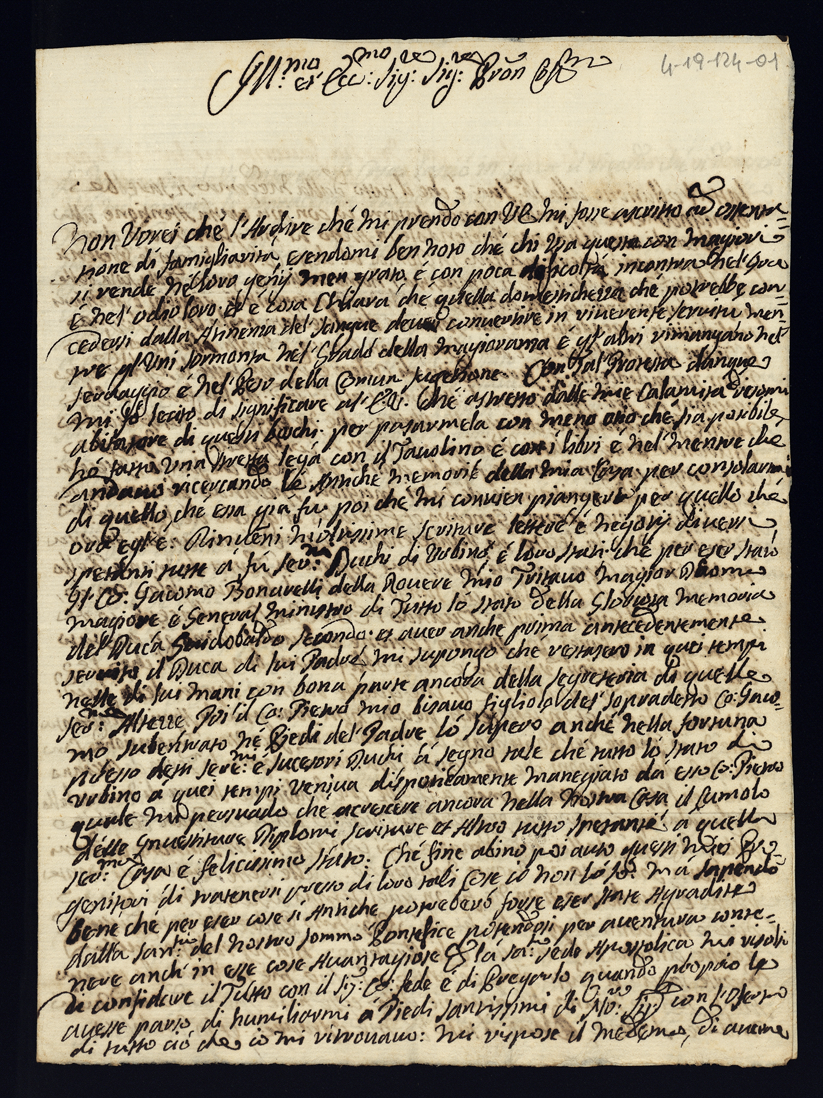 4-19-124-01
Ill.mo et Ecc.: Sig.re Sig.re Pron
Non Vorei che l'Ardire che mi prendo con VE mi fosse ascritto ad ostenta=
tione di famigliarità, esendomi ben noto che chi usa questa con magiori
si rende ne loro genij men grato, é con poca dificoltà incontra nel
é nel' odio loro et é cosa Chiara che quella domestichezza che potrebbe con=
cedersi dalla del sangue deve convertire in riverente servitù men=
tre gl'Uni sormonta nel' Grado della magioranza é gl'altri rimangano nel
é nel' Peso della Comun sugetione. Con tal Protesta dunque
mi fo lecito di significare al' che astretto dalle mie Calamità
abitatore di questi boschi per pasarmela con meno otio che sia posibile
hò fatto Una stretta lega con il Tavolino é con i libri e nel' mentre che
andavo ricercando le Antiche memorie della mia Casa per consolarmi
di quello che essa gia fu poi che mi convien piangere per quello che
ora egl'é: Rinveni moltissime scritture lettere é negotij diversi
spetanti tutte á sti Ser.mi Duchi di Urbino, é loro stati che per eser stato
Il Co: Giacomo Bonarelli della Rovere mio Tritavo magior Duomo
magiore é General ministro di Tutto lo stato della Gloriosa memoria
del' Duca Guidobaldo secondo et aver anche prima antecedentemente
servito il Duca di lui Padre, mi supongo che restasero in quei tempi
nelle di lui mani con bona parte ancora della segreteria di quelle
Ser.me Altezze. Poi il Co: Pietro mio bisavo figliolo del' sopradetto Co: Giaco=
mo subentrato ne Piedi del' Padre lo superò anche nella fortuna
presso detti Ser.mi é sucesori Duchi á segno tale che tutto lo stato di
Urbino a quei tempi Veniva disponeamente manegiato da esso Co: Pietro
quale mi persuado che acrescese ancora nella nostra Casa il Cumolo
delle Investiture Diplomi scritture et Altro tutto spetante á quella
Ser.ma Casa é felicissimo stato: Che fine abino poi auto questi miei Pro=
genitori di tratenersi presso di loro tali Cose io non lo só: má sapendo
bene che per eser cose si Antiche potrebero forse eser state Agradite
dalla San.tà del nostro sommo Pontefice potendosi per aventura conte=
nere anch' in esse cose Avantagiose la Sa. sede Apostolica mi risolsi
di confidare il Tutto con il Sig: Co: fede é di Pregarlo quando pro pio le
avesse parso, di humiliarmi a Piedi santissimi di No: Sig con l'
di tutto ciò che io mi ritrovavo: mi rispose il medemo, di averne